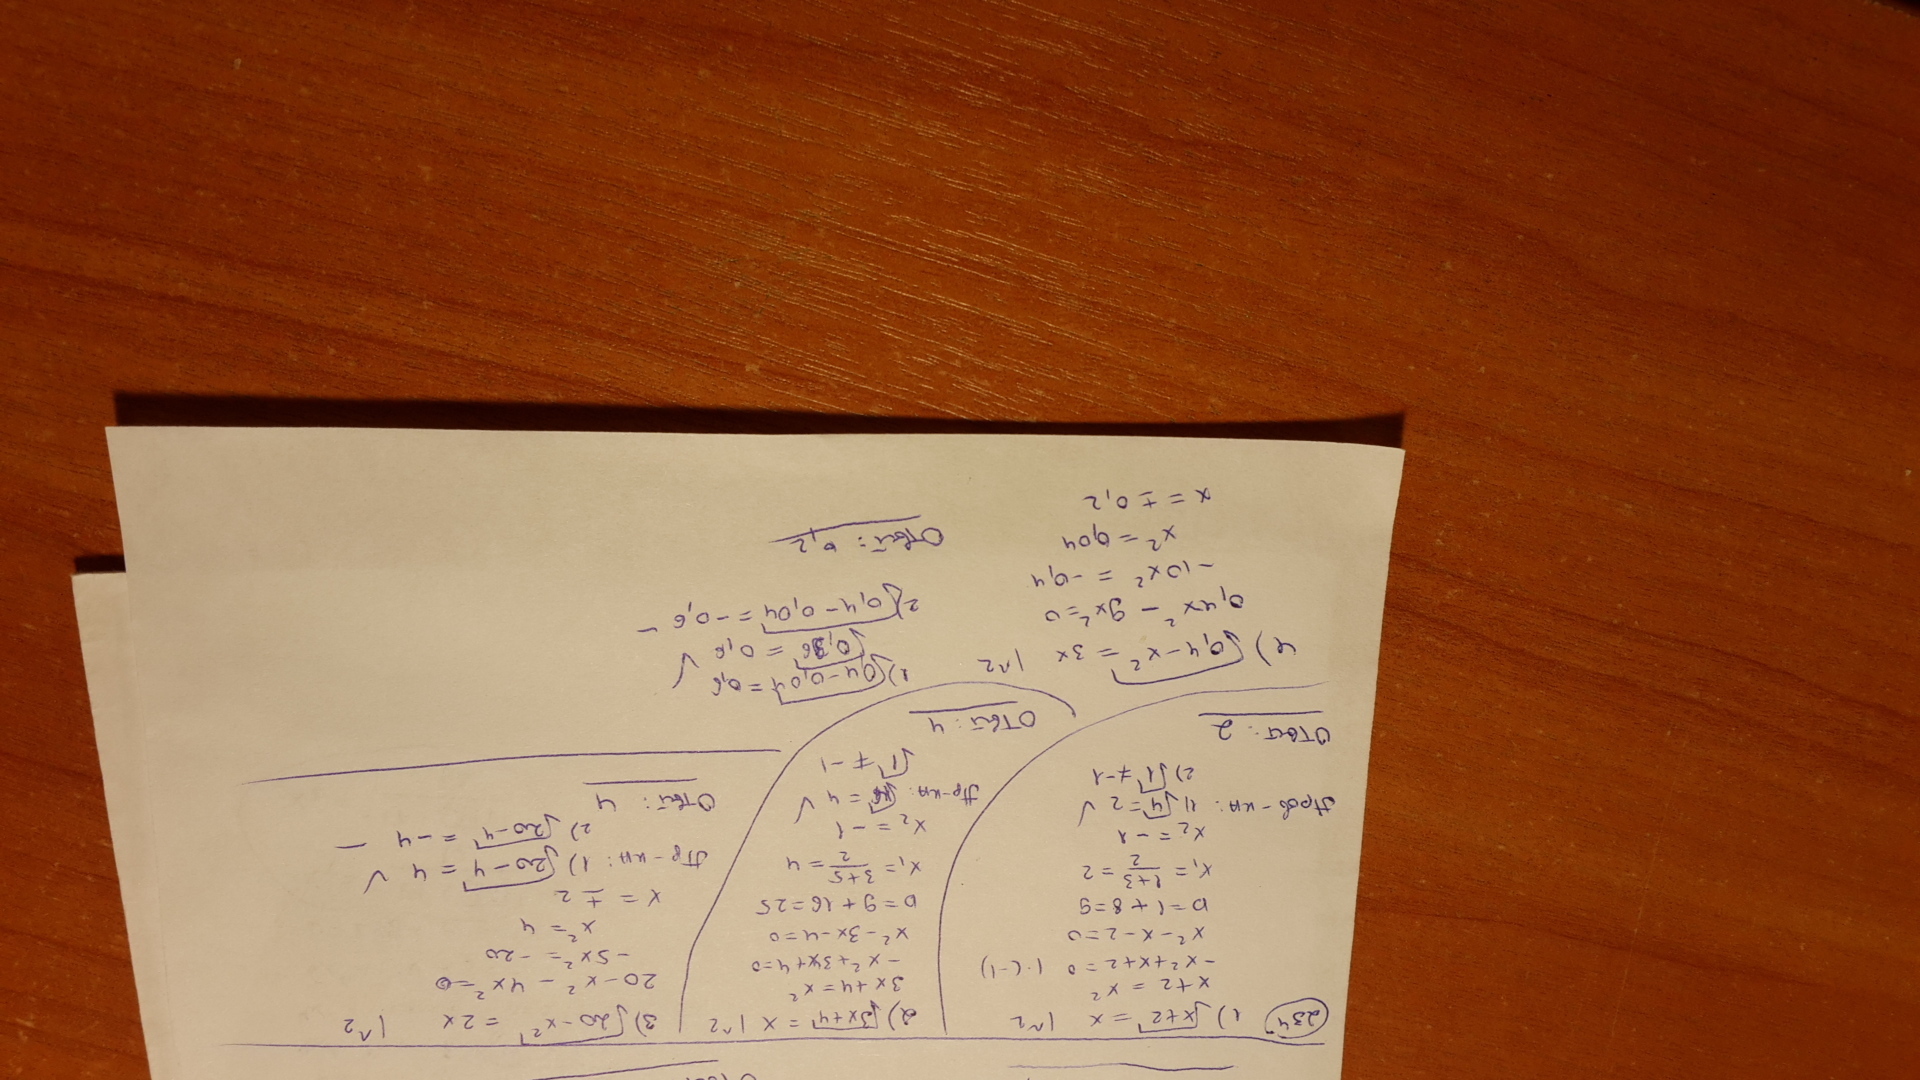 234
1) √x+2 = x |^2
x+2 = x²
-x²+x+2=0 |·(-1)
x²-x-2=0
D=1+8=9
x₁= 1+3/2 =2
x₂=-1
Пров-ка: 1) √4=2 ✓
2) √1 ≠-1
Ответ: 2
2) √3x+4 = x |^2
3x+4=x²
-x²+3x+4=0
x²-3x-4=0
D=9+16=25
x₁= 3+5/2 =4
x₂=-1
Пр-ка: √16=4 ✓
√1 ≠-1
Ответ: 4
3) √20-x² = 2x |^2
20-x²-4x²=0
-5x²=-20
x²=4
x=±2
Пр-ка: 1) √20-4 = 4 ✓
2) √20-4 = -4 –
Ответ: 4
4) √0,4-x² = 3x |^2
0,4x²-9x²=0
-10x²=-0,4
x²=0,04
x=±0,2
1) √0,4-0,04=0,6
√0,36=0,6 ✓
2) √0,4-0,04=-0,6 –
Ответ: 0,2